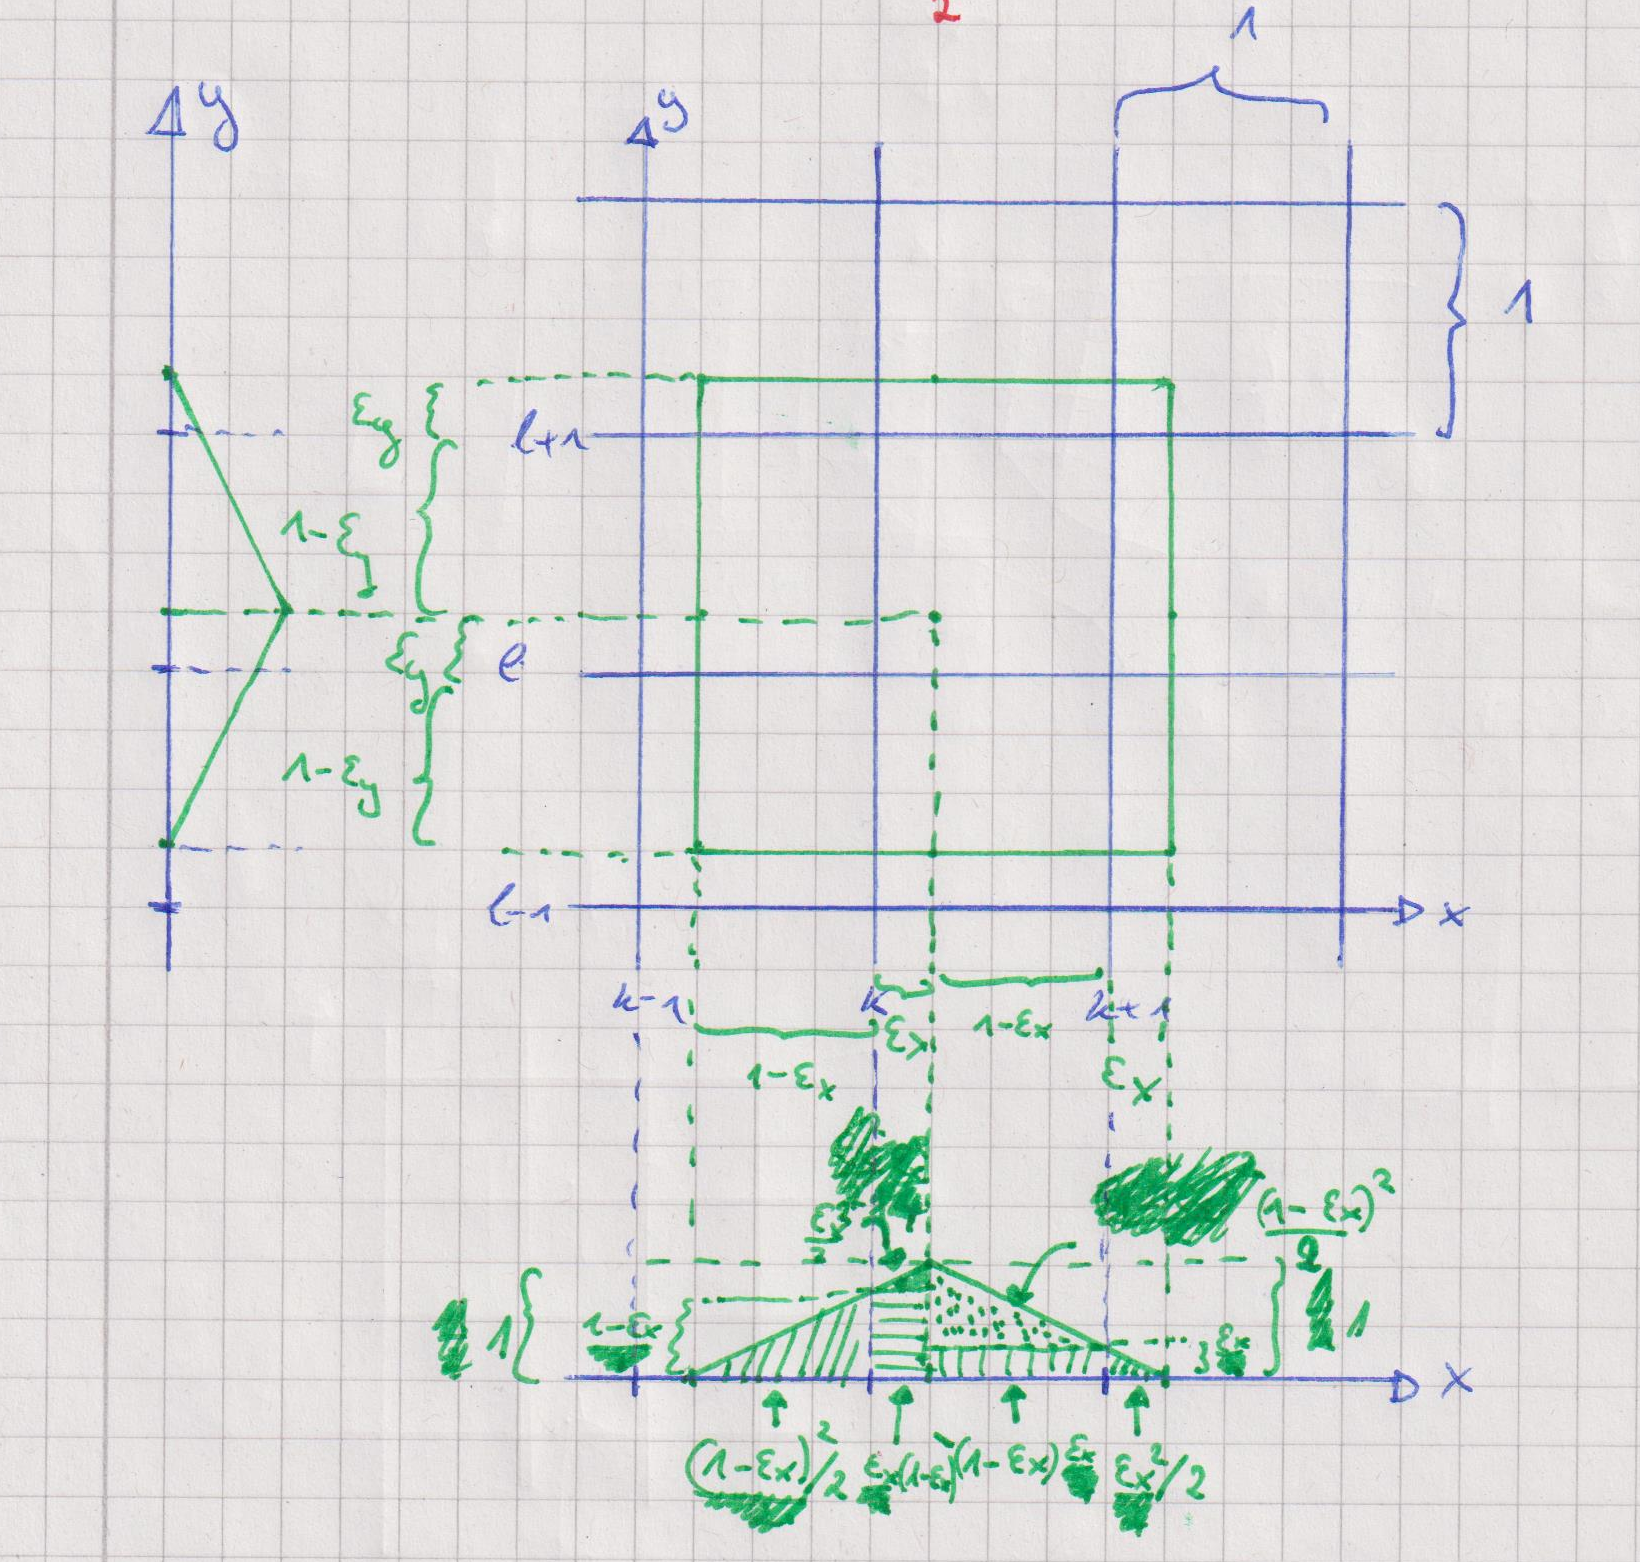 2
1
y
y
1
εy
l+1
1-εy
εy
l
1-εy
l-1
x
k-1
k
k+1
εx
1-εx
1-εx
εx
(1-εx)²/2
1
1-εx
εx
1
x
(1-εx)²/2
εx(1-εx)
(1-εx)εx
εx²/2